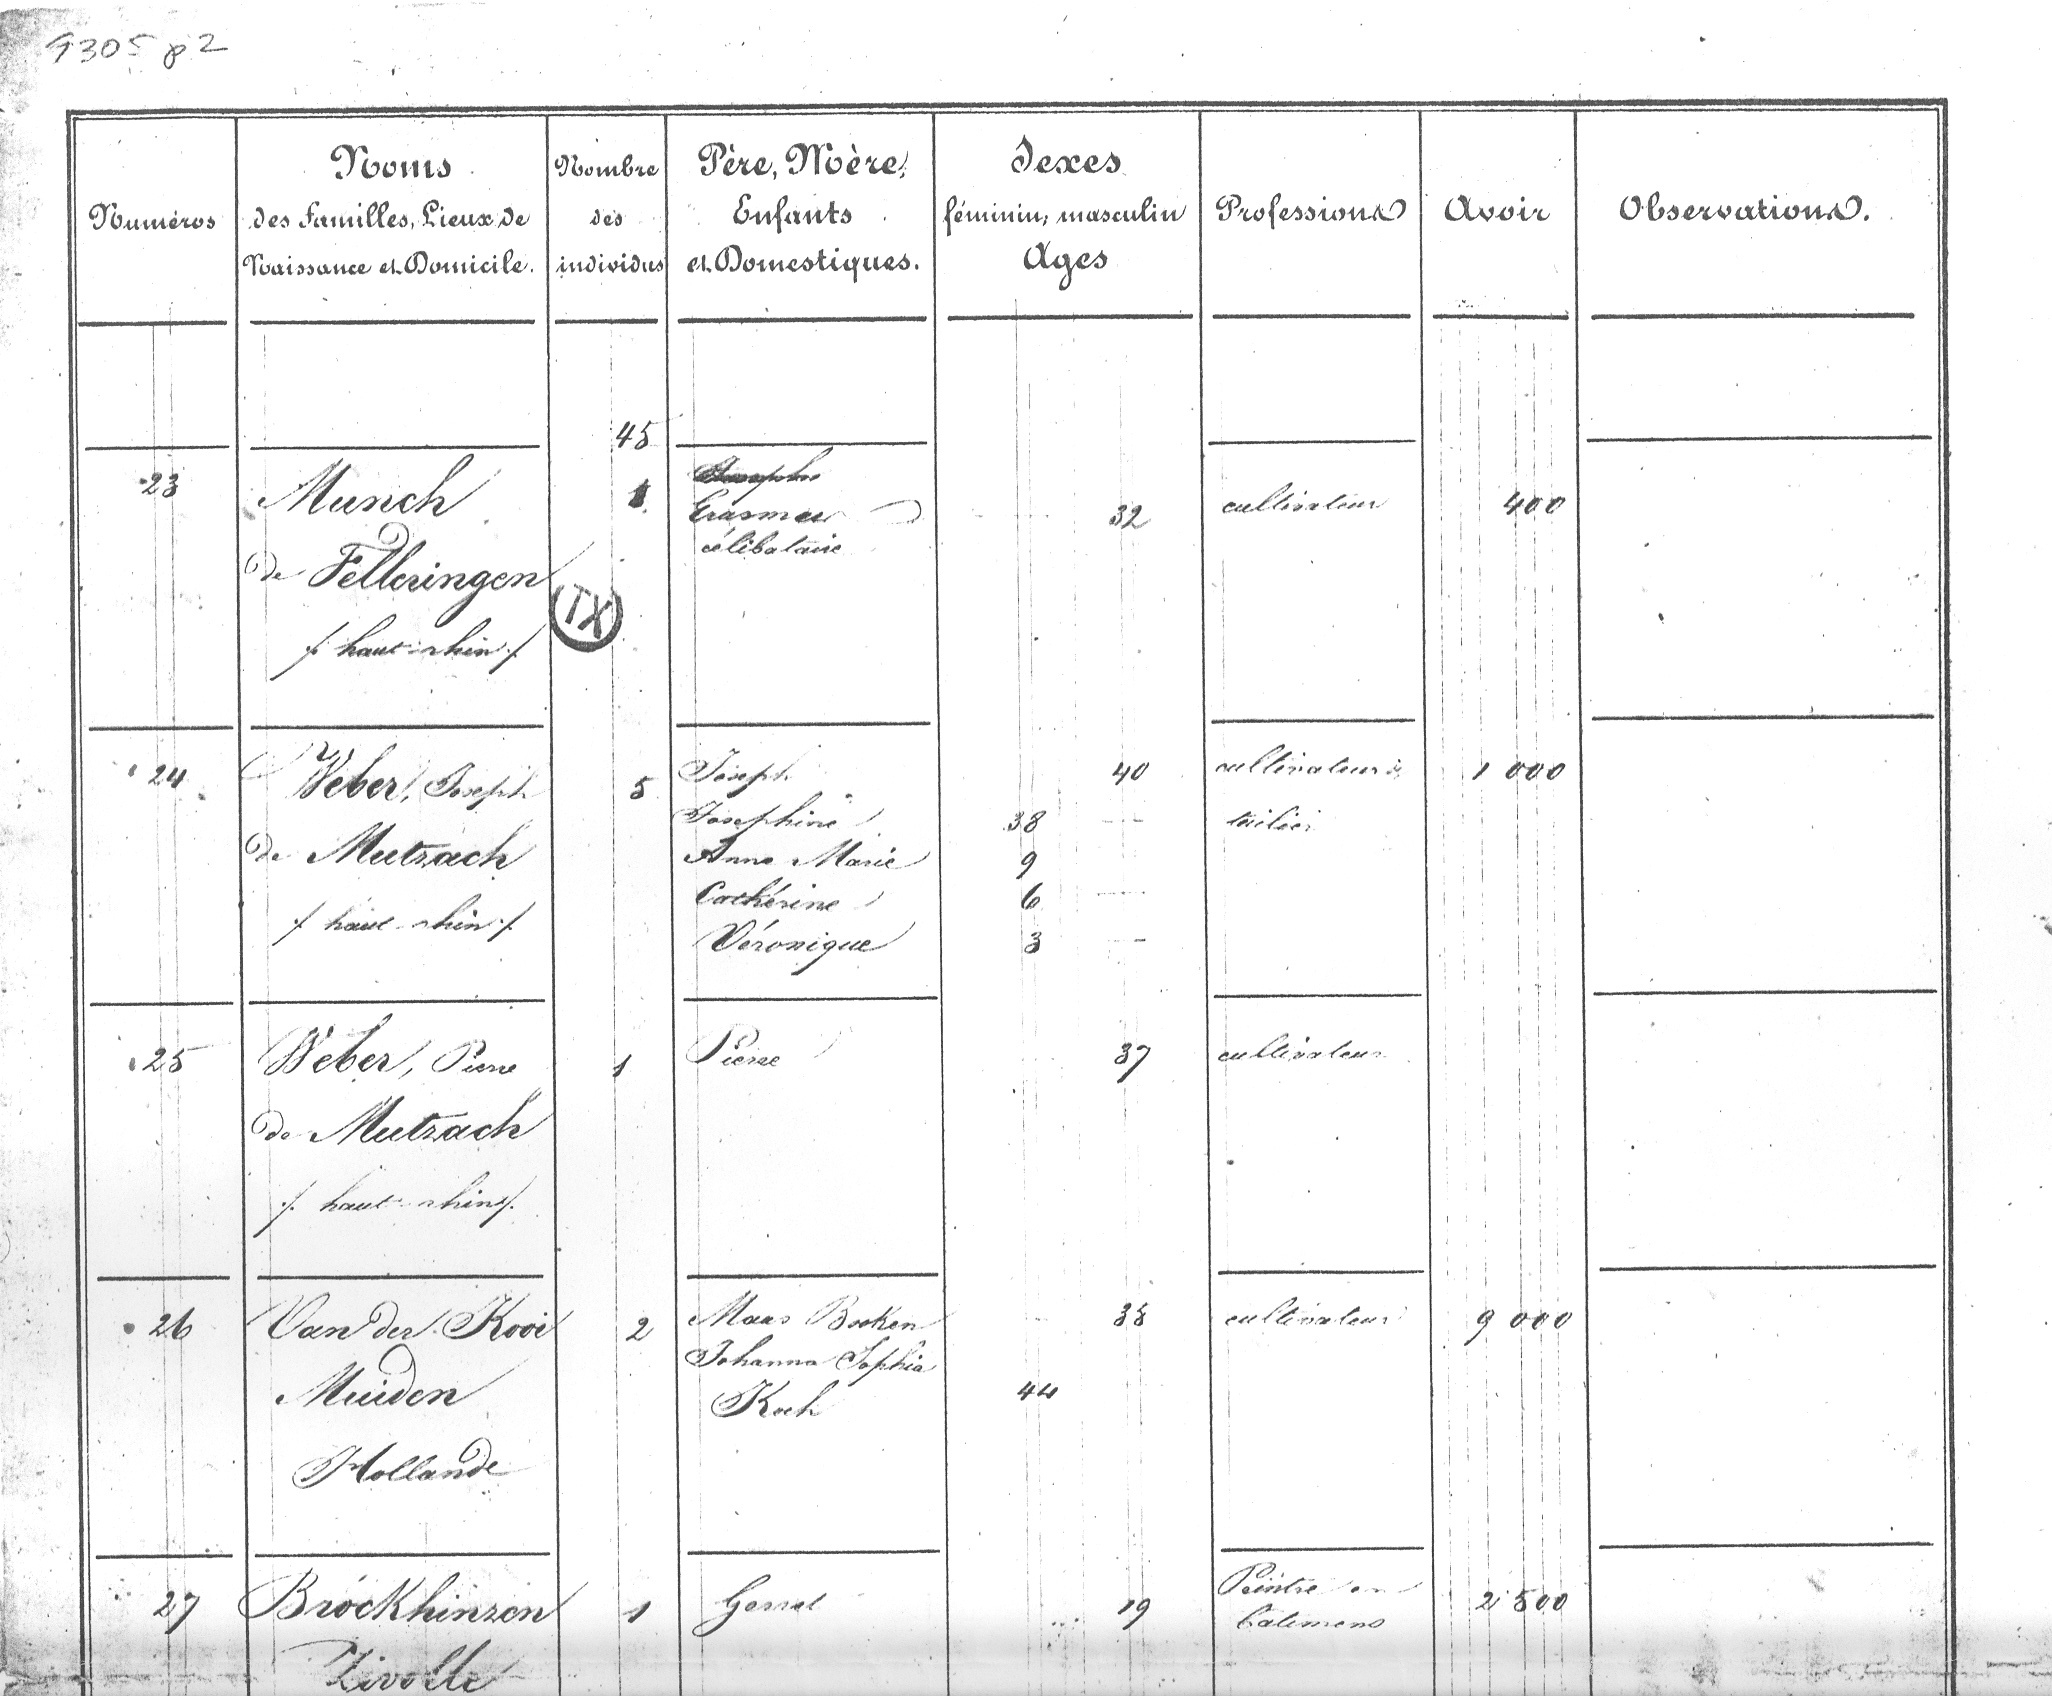 9305 p2
Numéros
Noms
des Familles, Lieux de
Naissance et Domicile.
Nombre
des
individus
Père, Mère,
Enfants
et Domestiques.
Sexes
féminin, masculin
Ages
Professions
Avoir
Observations.
45
23 Munch 1 Erasme 32 cultivateur 400
célibataire
de Felleringen
TX
/. haut-rhin ./
24 Weber, Joseph 5 Joseph 40 cultivateur & 1 000
Josephine 38
de Mutzach Anne Marie 9
Cathérine 6
/. haut-rhin ./ Véronique 3
25 Weber, Pierre 1 Pierre 37 cultivateur
de Mutzach
/. haut-rhin ./
26 Van der Kooi 2 Maas Booken 38 cultivateur 9 000
Johanna Sophia
Muiden Koch 44
Hollande
27 Bröckhinzen 1 Gerret 19 Peintre en 2 500
batimens
Zivolle